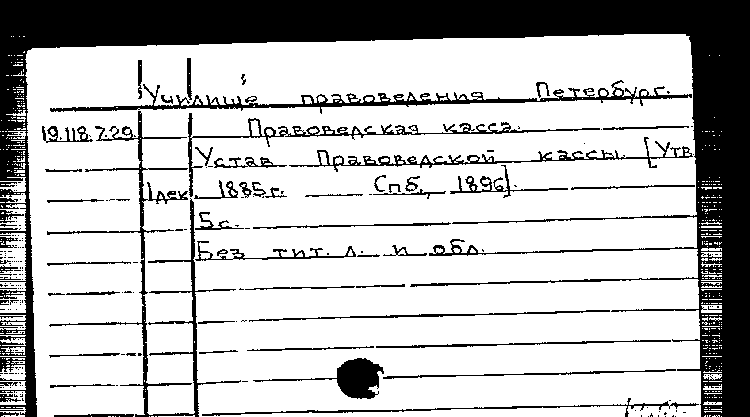 Училище правоведения. Петербург.
19.118.7.29 Правоведская касса.
Устав Правоведской кассы. [Утв.
1 дек. 1885г. Спб., 1896].
5с.
Без тит. л. и обл.